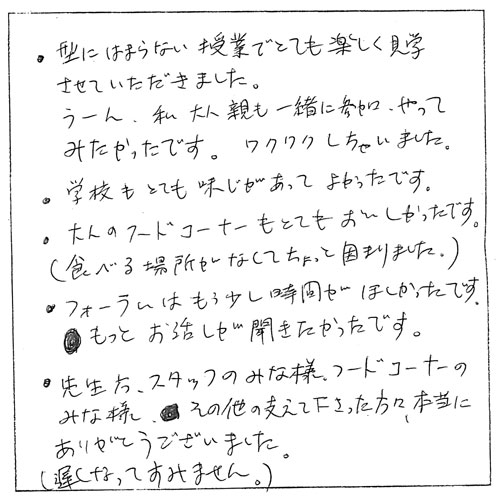 ・型にはまらない授業でとても楽しく見学
させていただきました。
うーん、私 大人 親も一緒に参加、やって
みたかったです。ワクワクしちゃいました。
・学校もとても味じがあってよかったです。
・大人のフードコーナーもとてもおいしかったです。
(食べる場所がなくてちょっと困りました。)
・フォーラムはもう少し時間がほしかったです。
もっとお話しが聞きたかったです。
・先生方、スタッフのみな様、フードコーナーの
みな様、その他の支えて下さった方々、本当に
ありがとうございました。
(遅くなってすみません。)